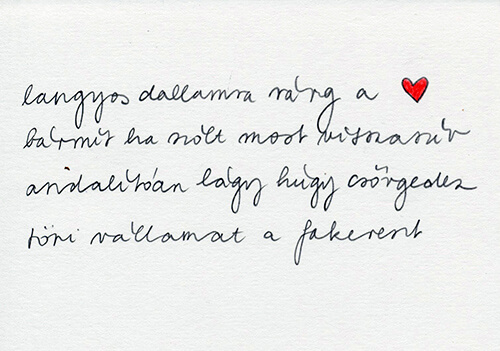 langyos dallamra ráng a ❤
bármit ha szólt most visszaszív
andalítóan lágy húgy csörgedez
töri vállamat a fakereszt